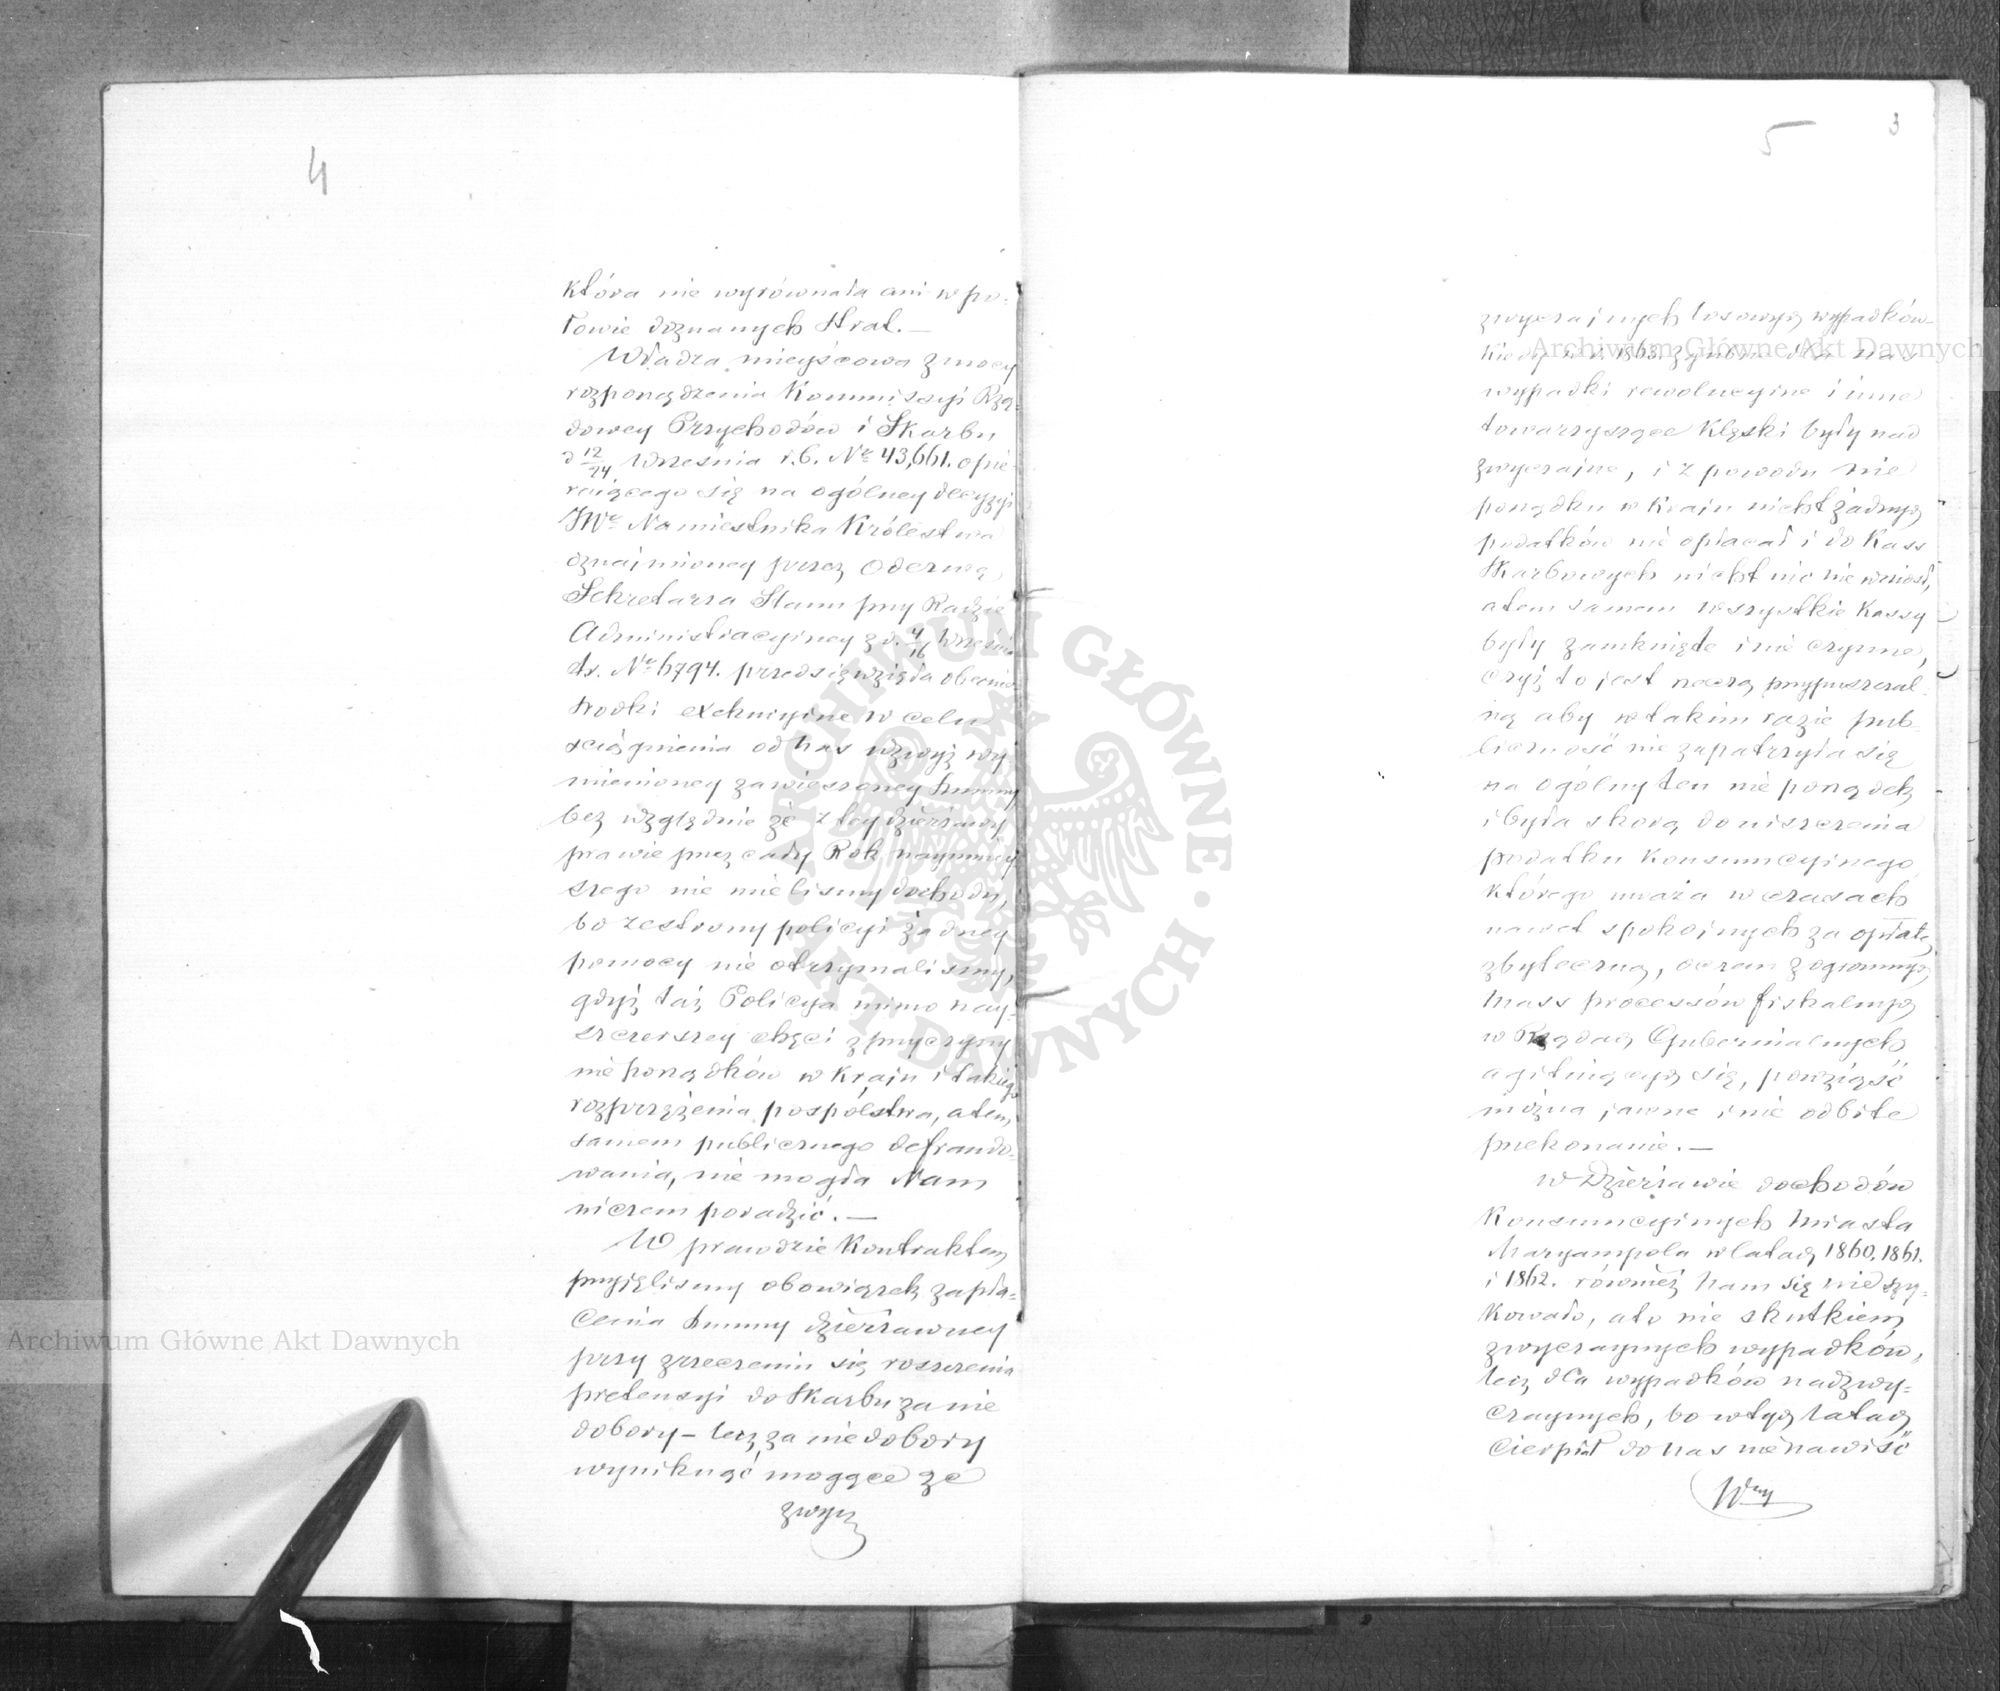 4
która nie wyrównała ani w po-
łowie doznanych Strat. —
Władza miejscowa z mocy
rozporządzenia Kommissyi Rzą-
dowey Przychodów i Skarbu
d 12/24 Września r.b. Nr 43,661. opie-
raiącego się na ogólney decyzyi
JWo Namiestnika Królestwa
oznajmioney przez Odezwę
Sekretarza Stanu przy Radzie
Administracyiney z d. 4/16 Wrześn
t.r. Nr 6794. przedsięwzięła obecnie
środki exekucyine w celu
ściągnienia od nas wzwyż wy
mienioney zawieszoney summy
bez względnie że z tey dzierżawy
prawie przez cały Rok naymniey
szego nie mielismy dochodu,
bo ze strony policyi żadney
pomocy nie otrzymalismy,
gdyż taż Policya mimo nay-
szczerszey chęci z przyczyny
nieporządków w kraju i takiego
rozprzężenia pospólstwa, a tem
samem publicznego defraudo-
wania, nie mogła Nam
niczem poradzić. —
W prawdzie Kontraktem
przyięlismy obowiązek zapła-
cenia summy dzierżawney
przy zrzeczeniu się roszczenia
pretensyi do Skarbu za nie
dobory – lecz za niedobory
wyniknąć mogące ze
zwycz
5
3
zwyczajnych losowych wypadków
Kiedy w r. 1863 zgubne dla nas
wypadki rewolucyine i inne
towarzyszące Klęski były nad
zwyczaine, i z powodu nie
porządku w Kraju nicht żadnych
podatków nie opłacał i do Kass
Skarbowych nicht nic nie wniosł,
a tem samem wszystkie Kassy
były zamknięte i nie czynne,
czyż to jest rzeczą przypuszczal-
ną aby w takim razie pub-
liczność nie zapatrzyła się
na ogólny ten nie porządek
i była skorą do niszczenia
podatku Konsumcyinego
którego uważa w czasach
nawet spokojnych za opłatę
zbyteczną, o czem z ogromnych
mass processów fiskalnych
w Rządach Gubernialnych
agituiących się, powziąść
można jawne i nie odbite
przekonanie. —
w Dzierżawie dochodów
Konsumcyinych Miasta
Maryampola w latach 1860. 1861.
i 1862. również nam się nie szy-
kowało, a to nie skutkiem
zwyczaynych wypadków,
lecz dla wypadków nadzwy-
czaynych, bo w tych latach
cierpiał do nas nienawiść
Archiwum Główne Akt Dawnych
Archiwum Główne Akt Dawnych
ARCHIWUM GŁÓWNE · AKT DAWNYCH ·